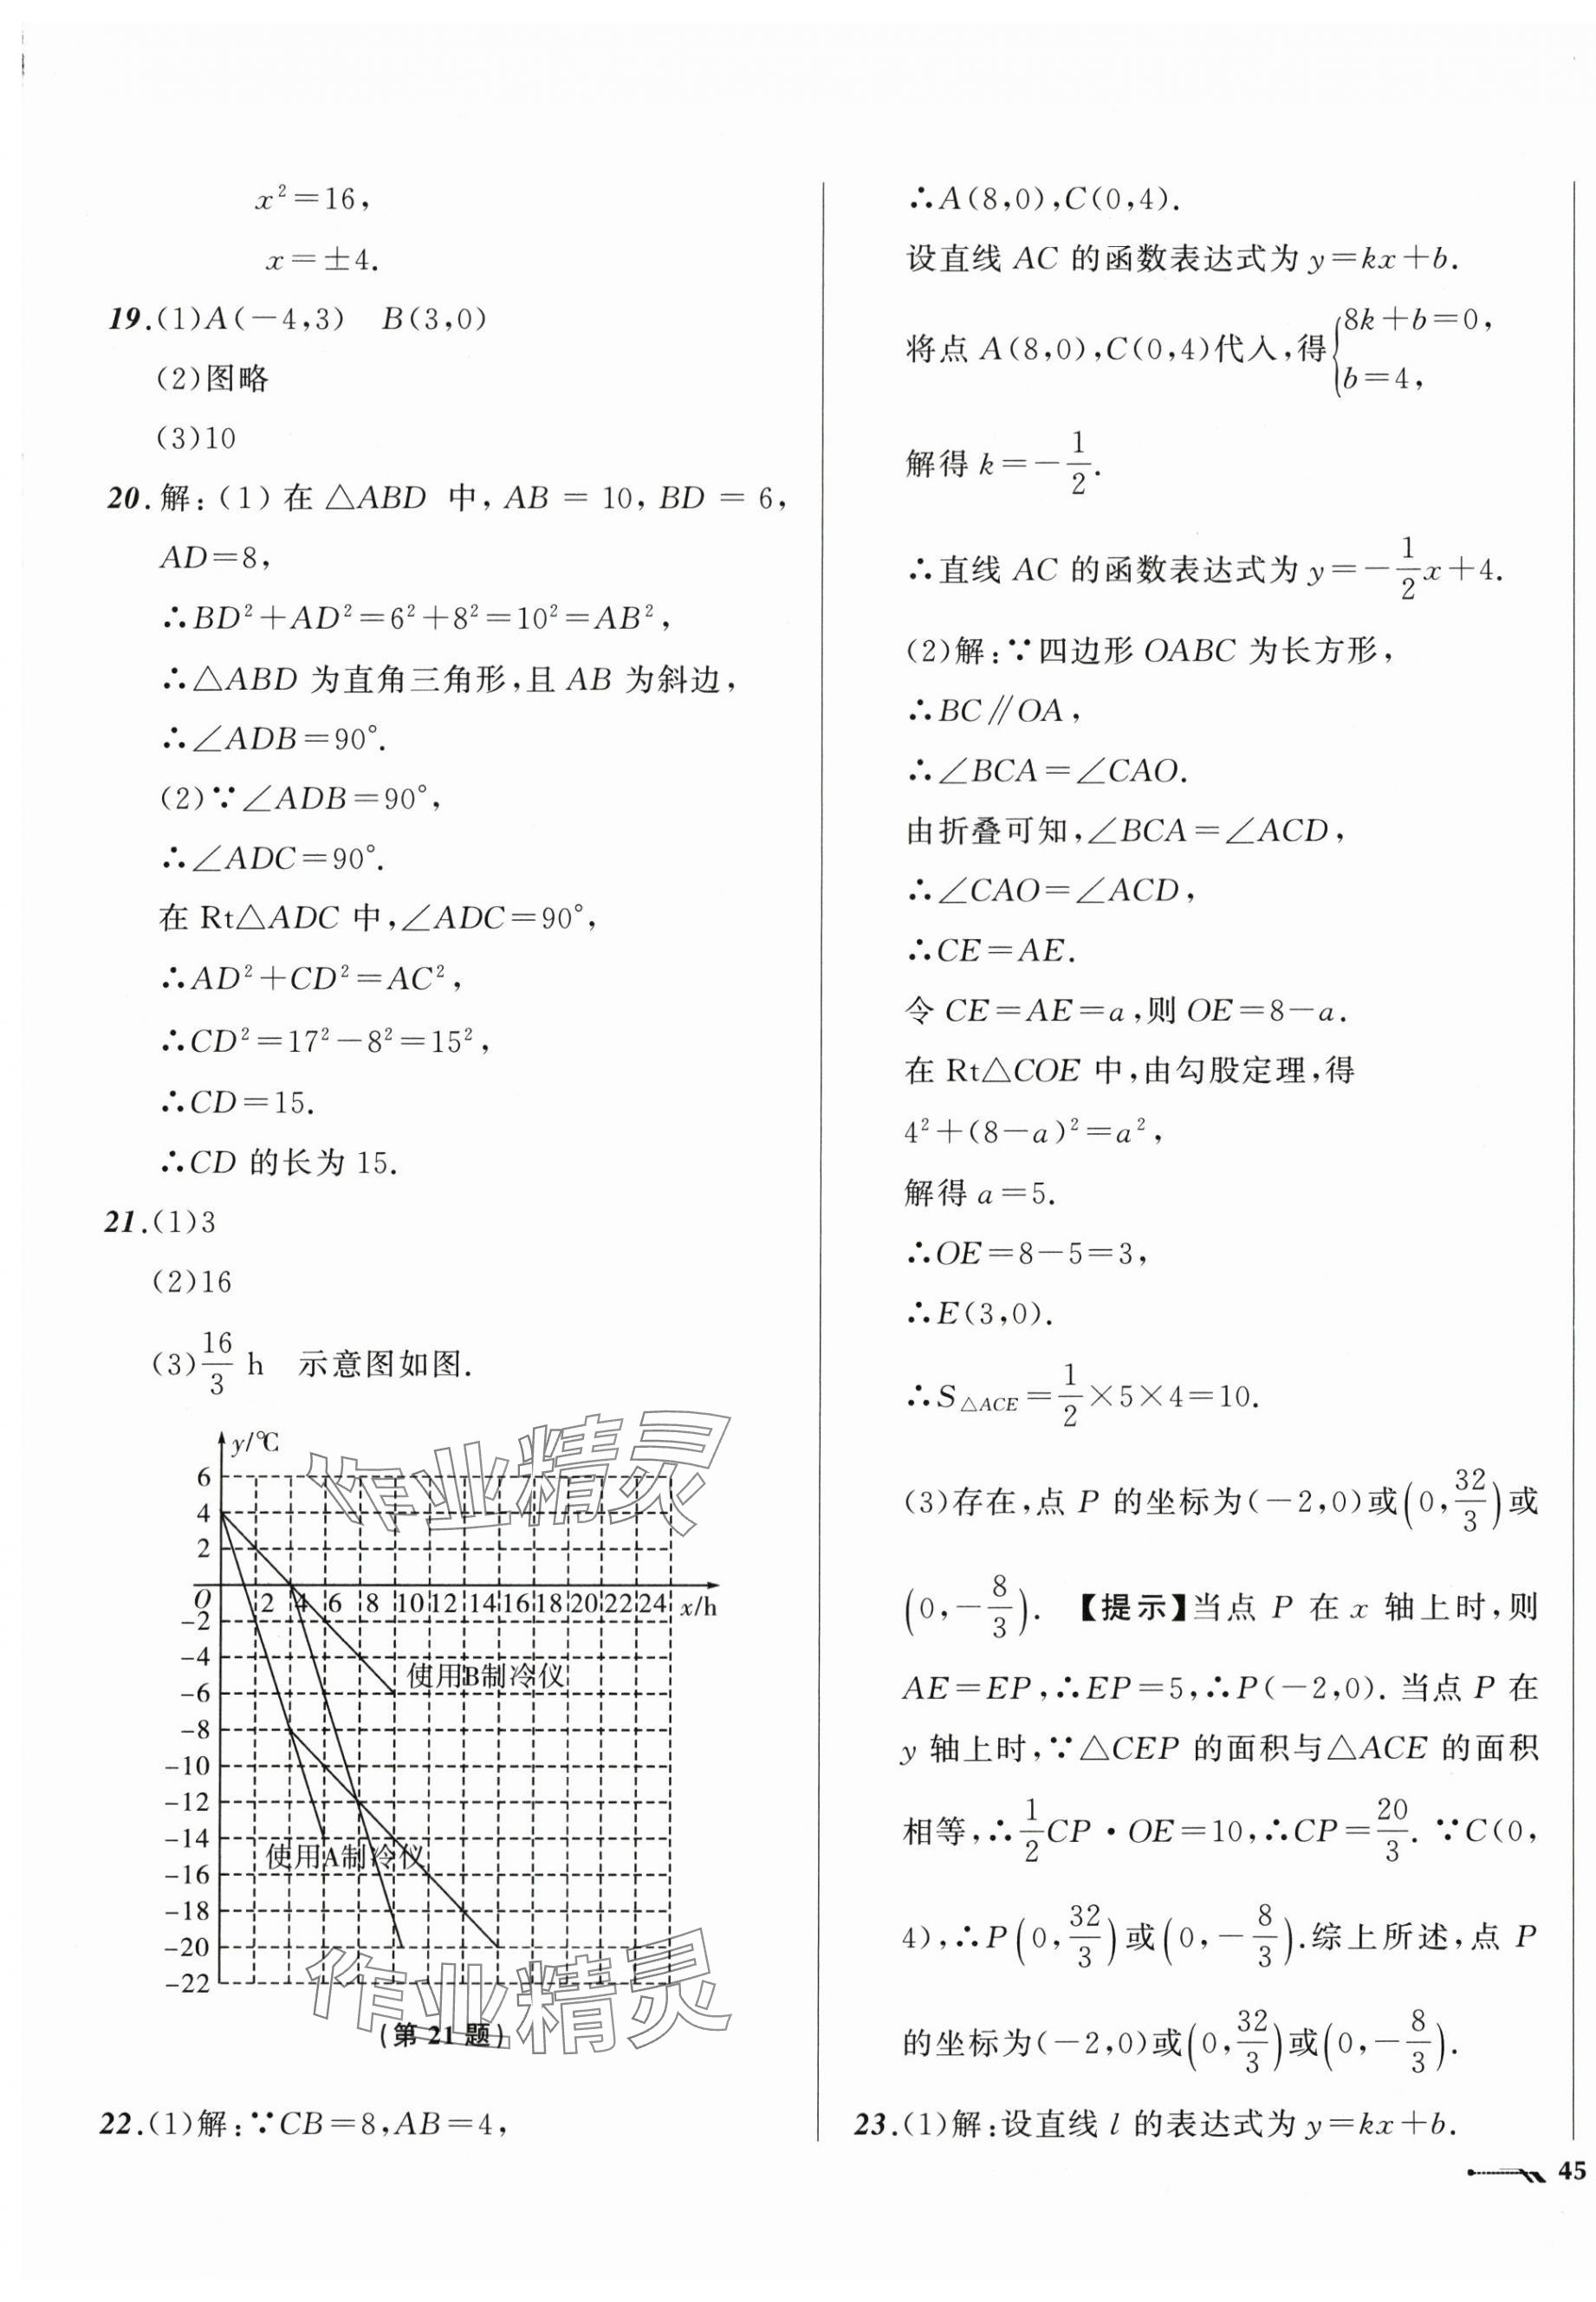 x²=16,
x=±4.
19.(1)A(-4,3)  B(3,0)
(2)图略
(3)10
20.解:(1)在△ABD 中,AB=10,BD=6,
AD=8,
∴BD²+AD²=6²+8²=10²=AB²,
∴△ABD 为直角三角形,且 AB 为斜边,
∴∠ADB=90°.
(2)∵∠ADB=90°,
∴∠ADC=90°.
在 Rt△ADC 中,∠ADC=90°,
∴AD²+CD²=AC²,
∴CD²=17²-8²=15²,
∴CD=15.
∴CD 的长为 15.
21.(1)3
(2)16
(3)16/3 h  示意图如图.
y/℃
6
4
2
O 2 4 6 8 10 12 14 16 18 20 22 24 x/h
-2
-4
使用B制冷仪
-6
-8
-10
-12
-14
使用A制冷仪
-16
-18
-20
-22
作业精灵
作业精灵
(第 21 题)
22.(1)解:∵CB=8,AB=4,
∴A(8,0),C(0,4).
设直线 AC 的函数表达式为 y=kx+b.
将点 A(8,0),C(0,4)代入,得{8k+b=0,
b=4,
解得 k=-1/2.
∴直线 AC 的函数表达式为 y=-1/2x+4.
(2)解:∵四边形 OABC 为长方形,
∴BC∥OA,
∴∠BCA=∠CAO.
由折叠可知,∠BCA=∠ACD,
∴∠CAO=∠ACD,
∴CE=AE.
令 CE=AE=a,则 OE=8-a.
在 Rt△COE 中,由勾股定理,得
4²+(8-a)²=a²,
解得 a=5.
∴OE=8-5=3,
∴E(3,0).
∴S△ACE=1/2×5×4=10.
(3)存在,点 P 的坐标为(-2,0)或(0,32/3)或
(0,-8/3). 【提示】当点 P 在 x 轴上时,则
AE=EP,∴EP=5,∴P(-2,0). 当点 P 在
y 轴上时,∵△CEP 的面积与△ACE 的面积
相等,∴1/2CP·OE=10,∴CP=20/3. ∵C(0,
4),∴P(0,32/3)或(0,-8/3).综上所述,点 P
的坐标为(-2,0)或(0,32/3)或(0,-8/3).
23.(1)解:设直线 l 的表达式为 y=kx+b.
45